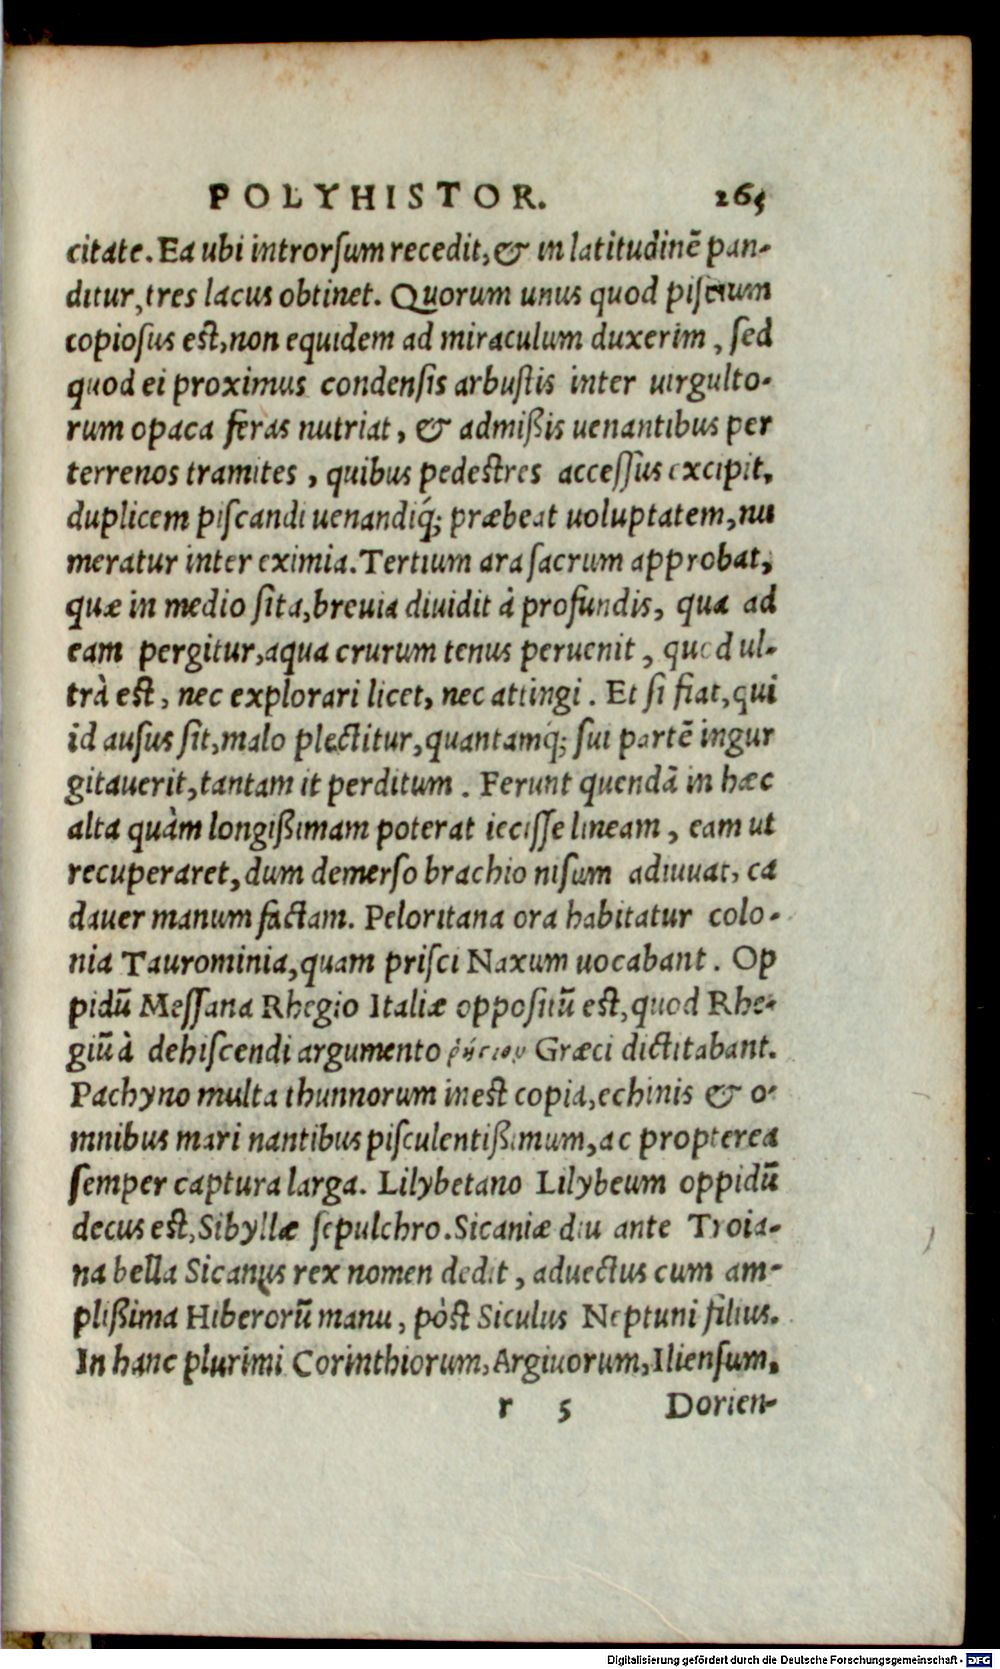 POLYHISTOR. 265
citate. Ea ubi introrsum recedit, & in latitudinẽ pan-
ditur, tres lacus obtinet. Quorum unus quod piscium
copiosus est, non equidem ad miraculum duxerim, sed
quod ei proximus condensis arbustis inter uirgulto-
rum opaca feras nutriat, & admißis uenantibus per
terrenos tramites, quibus pedestres accessus excipit,
duplicem piscandi uenandiq́; præbeat uoluptatem, nu
meratur inter eximia. Tertium ara sacrum approbat,
quæ in medio sita, breuia diuidit à profundis, qua ad
eam pergitur, aqua crurum tenus peruenit, quod ul-
trà est, nec explorari licet, nec attingi. Et si fiat, qui
id ausus sit, malo plectitur, quantamq́; sui partẽ ingur
gitauerit, tantam it perditum. Ferunt quendã in hæc
alta quàm longißimam poterat iecisse lineam, eam ut
recuperaret, dum demerso brachio nisum adiuuat, ca
dauer manum factam. Peloritana ora habitatur colo-
nia Taurominia, quam prisci Naxum uocabant. Op
pidũ Messana Rhegio Italiæ oppositũ est, quod Rhe-
giũ à dehiscendi argumento Græci dictitabant.
Pachyno multa thunnorum inest copia, echinis & o-
mnibus mari nantibus pisculentißimum, ac propterea
semper captura larga. Lilybetano Lilybeum oppidũ
decus est, Sibyllæ sepulchro. Sicaniæ diu ante Troia-
na bella Sicanus rex nomen dedit, aduectus cum am-
plißima Hiberorũ manu, pòst Siculus Neptuni filius.
In hanc plurimi Corinthiorum, Argiuorum, Iliensum,
r 5 Dorien-
Digitalisierung gefördert durch die Deutsche Forschungsgemeinschaft - DFG